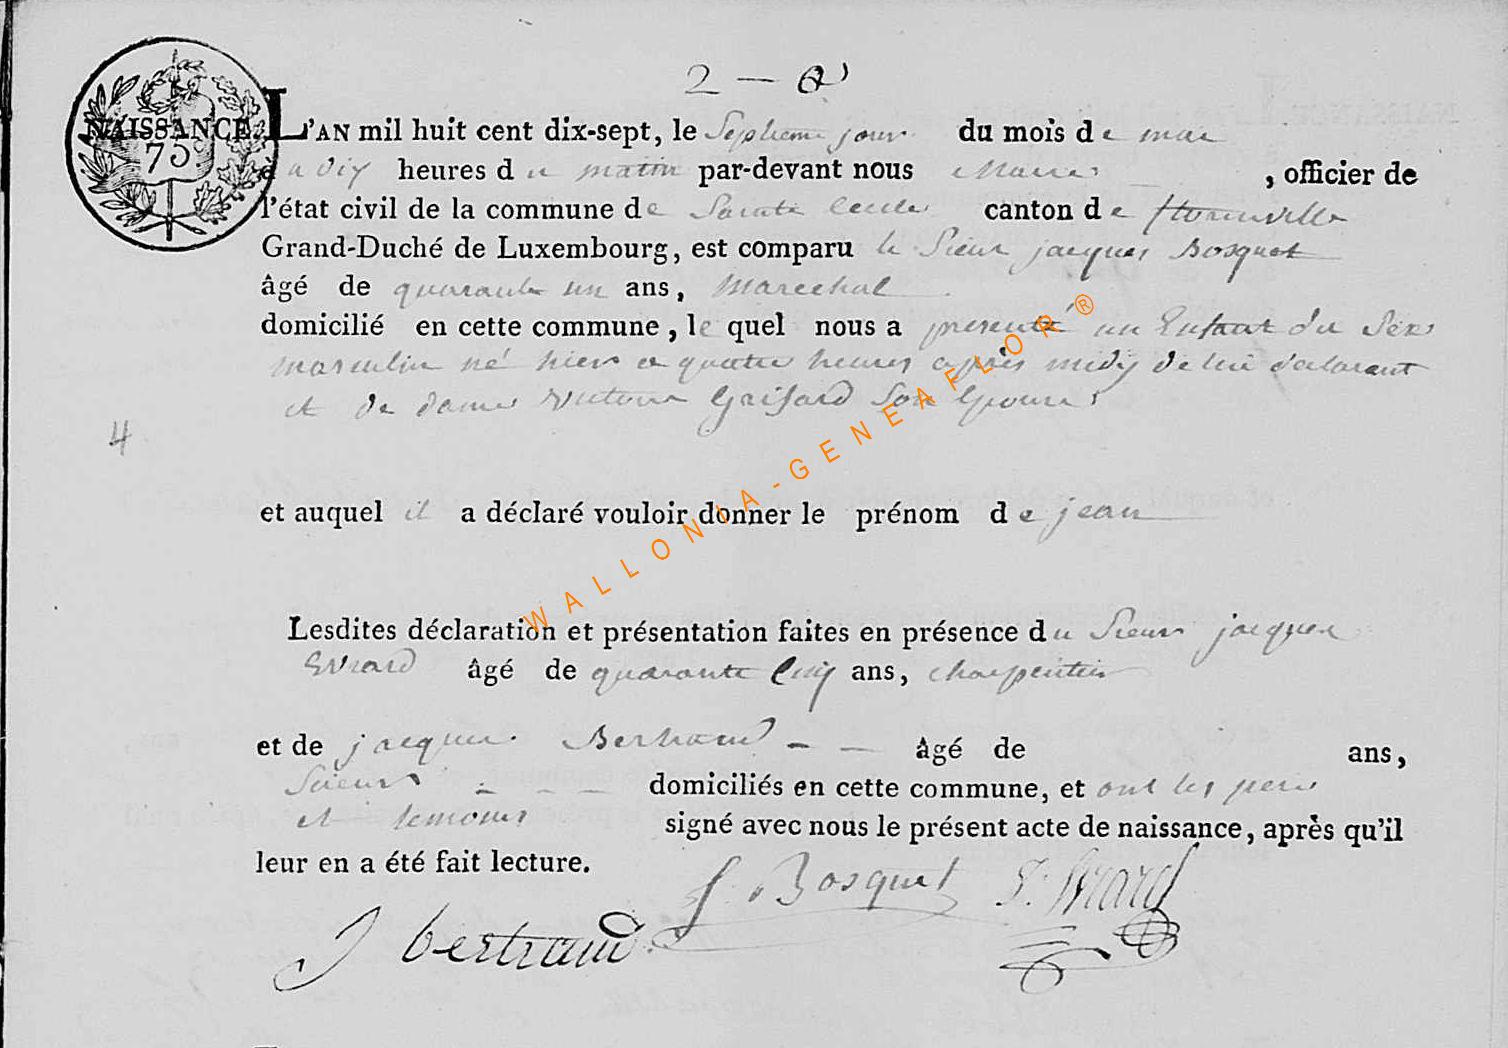 2 —
NAISSANCE
75
L'AN mil huit cent dix-sept, le Septieme jour du mois de mai
a dix heures du matin par-devant nous Maire, officier de
l'état civil de la commune de Sainte Cecile canton de florenville
Grand-Duché de Luxembourg, est comparu le Sieur jacques Bosquet
âgé de quarante un ans, Marechal
domicilié en cette commune, le quel nous a presenté un Enfant du Sex
masculin né hier a quatre heures après midy de lui declarant
et de dame Victoire Grifard Son Epouse
4
et auquel il a déclaré vouloir donner le prénom de jean
WALLONIA-GENEAFLOR®
Lesdites déclaration et présentation faites en présence du Sieur jacques
Evrard âgé de quarante Cinq ans, charpentier
et de jacques Bertrand - - âgé de ans,
Scieur - - - domiciliés en cette commune, et ont les pere
et temoins signé avec nous le présent acte de naissance, après qu'il
leur en a été fait lecture.
J. Bosquet J. Evrard
J bertrand